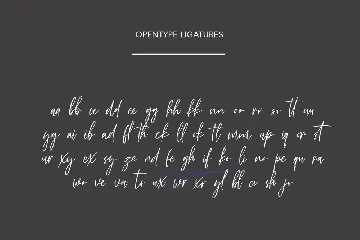 OPENTYPE LIGATURES
aa bb cc dd ee gg hh kk nn oo rr ss tt uu
yg ai ib ad ff th ck ll ck tl mm up iq cr st
ux xy ex sy za nd fe gh if ko li no pe qu ra
wo ve va to nx wr xr yl bl c sh jr